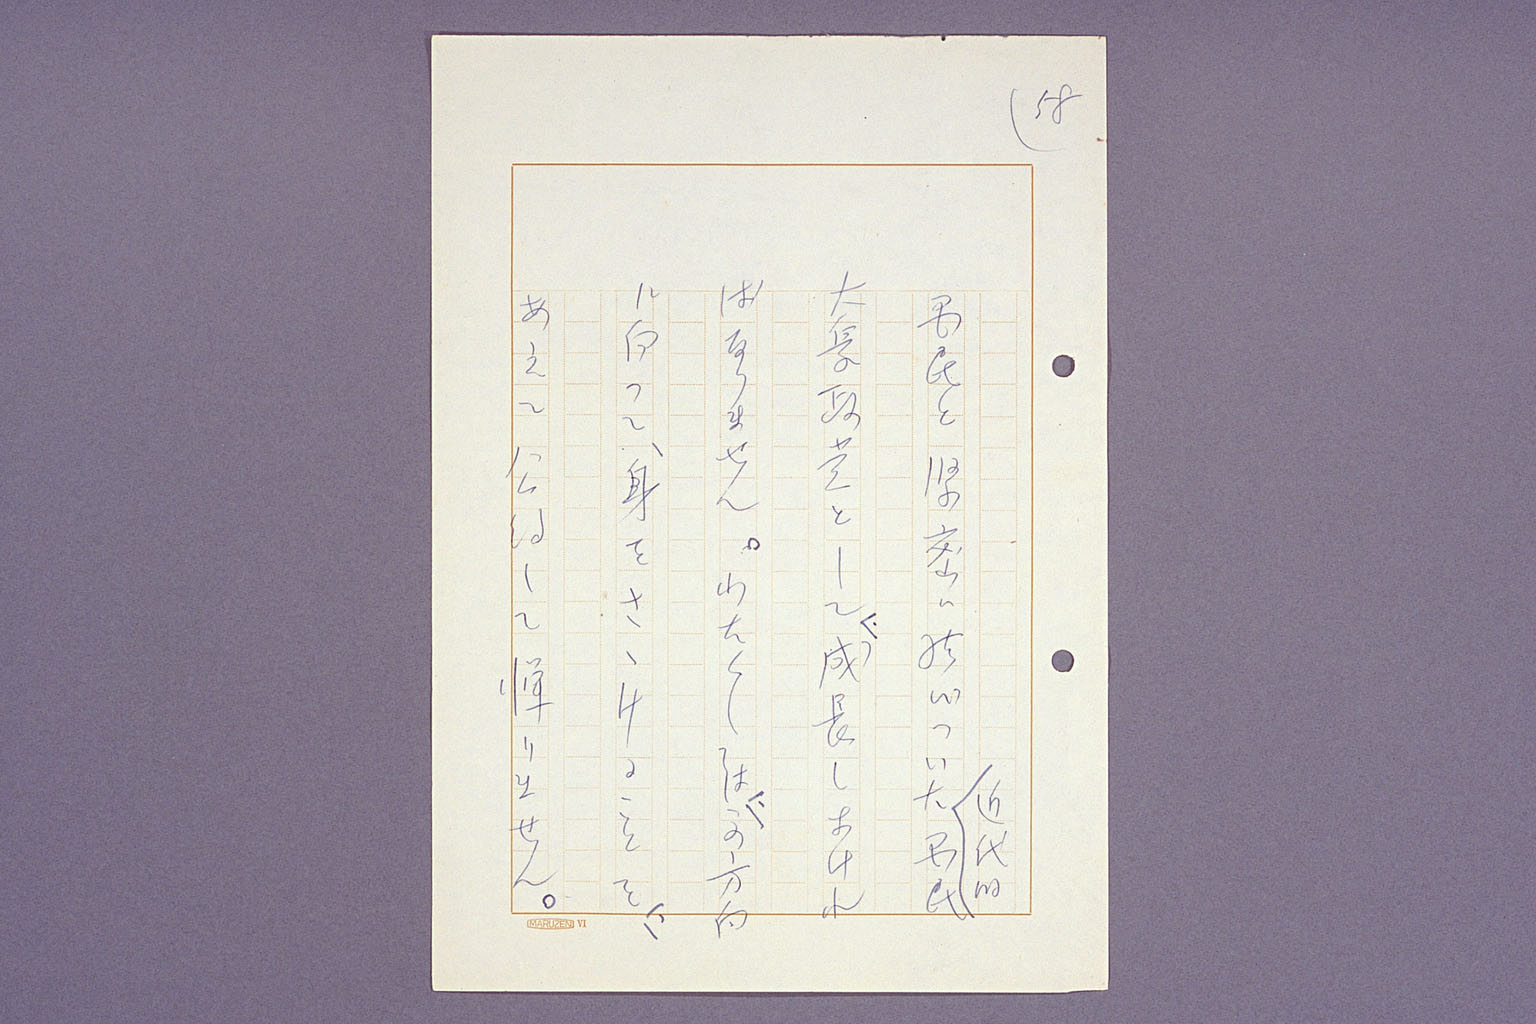 58
近代的
国民と緊密に結びついた国民
大衆政党として成長しなければ
ばなりません。わたくしはこの方向
に向って、身をさゝげることを
あえて公約して憚りません。
MARUZEN VI